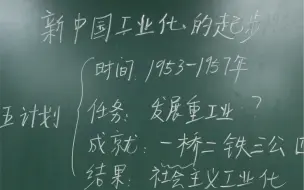 新中国工业化的起步
五计划
时间：1953-1957年
任务：发展重工业？
成就：一桥二铁三公四
结果：社会主义工业化